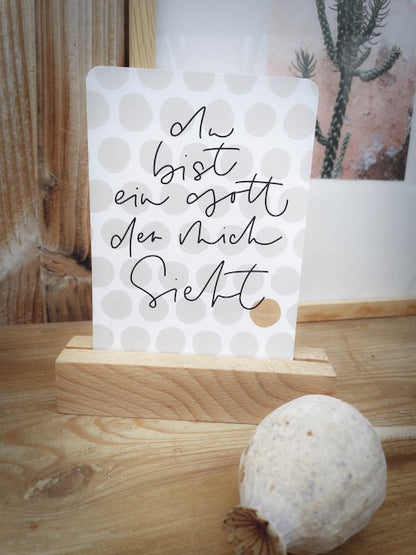 du
bist
ein Gott
der mich
Sieht